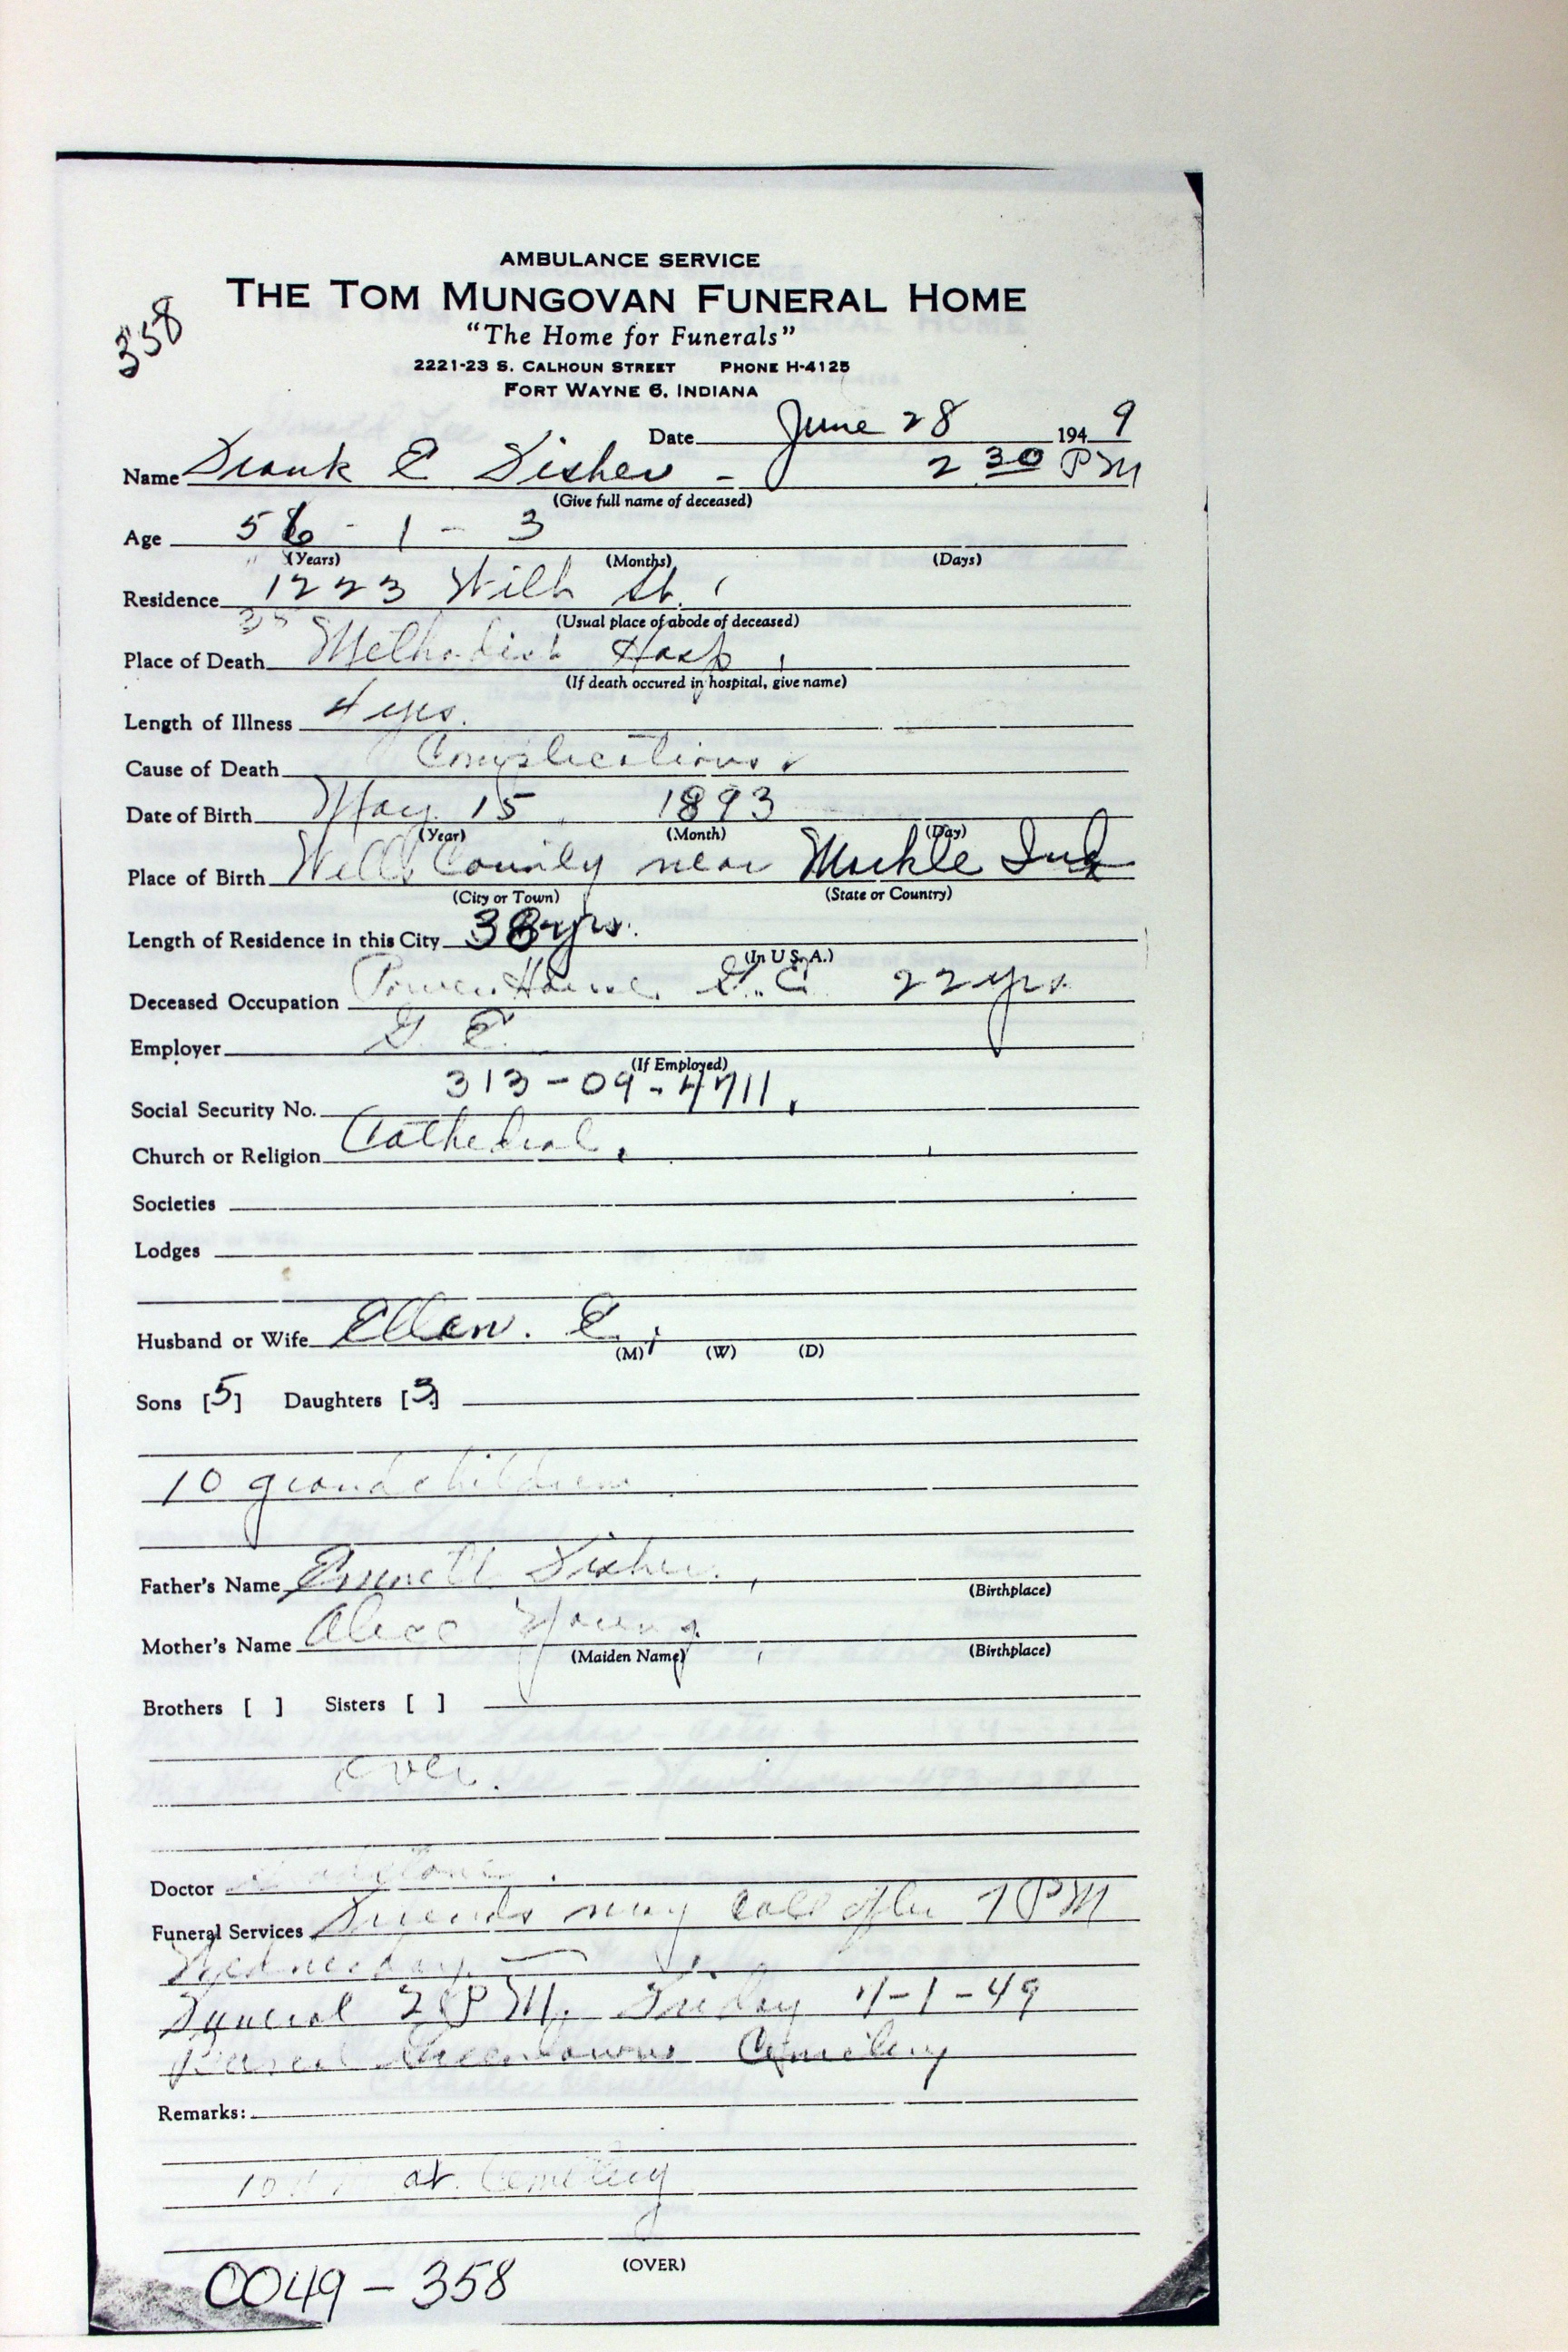 358
AMBULANCE SERVICE
THE TOM MUNGOVAN FUNERAL HOME
"The Home for Funerals"
2221-23 S. CALHOUN STREET PHONE H-4125
FORT WAYNE 6, INDIANA
Date June 28 1949
Name Frank E Fisher - 2 30 PM
(Give full name of deceased)
Age 56 - 1 - 3
(Years) (Months) (Days)
Residence 1223 St.
(Usual place of abode of deceased)
Place of Death Methodist Hosp.
(If death occured in hospital, give name)
Length of Illness 4 yrs.
Cause of Death Complications
Date of Birth May 15 1893
(Year) (Month) (Day)
Place of Birth Wells County near Markle Ind
(City or Town) (State or Country)
Length of Residence in this City 38 yrs.
(In U S. A.)
Deceased Occupation Power House. G.E. 22 yrs.
Employer G. E.
(If Employed)
Social Security No. 313-09-4711
Church or Religion Cathedral
Societies
Lodges
Husband or Wife Ellen. E.
(M) (W) (D)
Sons [5] Daughters [3]
10 grandchildren
Father's Name Emmett Fisher
(Birthplace)
Mother's Name Alice Young
(Maiden Name) (Birthplace)
Brothers [ ] Sisters [ ]
over.
Doctor
Funeral Services Friends may call after 7 PM
Wednesday.
Funeral 2 PM. Friday 7-1-49
Greenlawns Cemetery
Remarks:
at Cemetery
(OVER)
0049-358